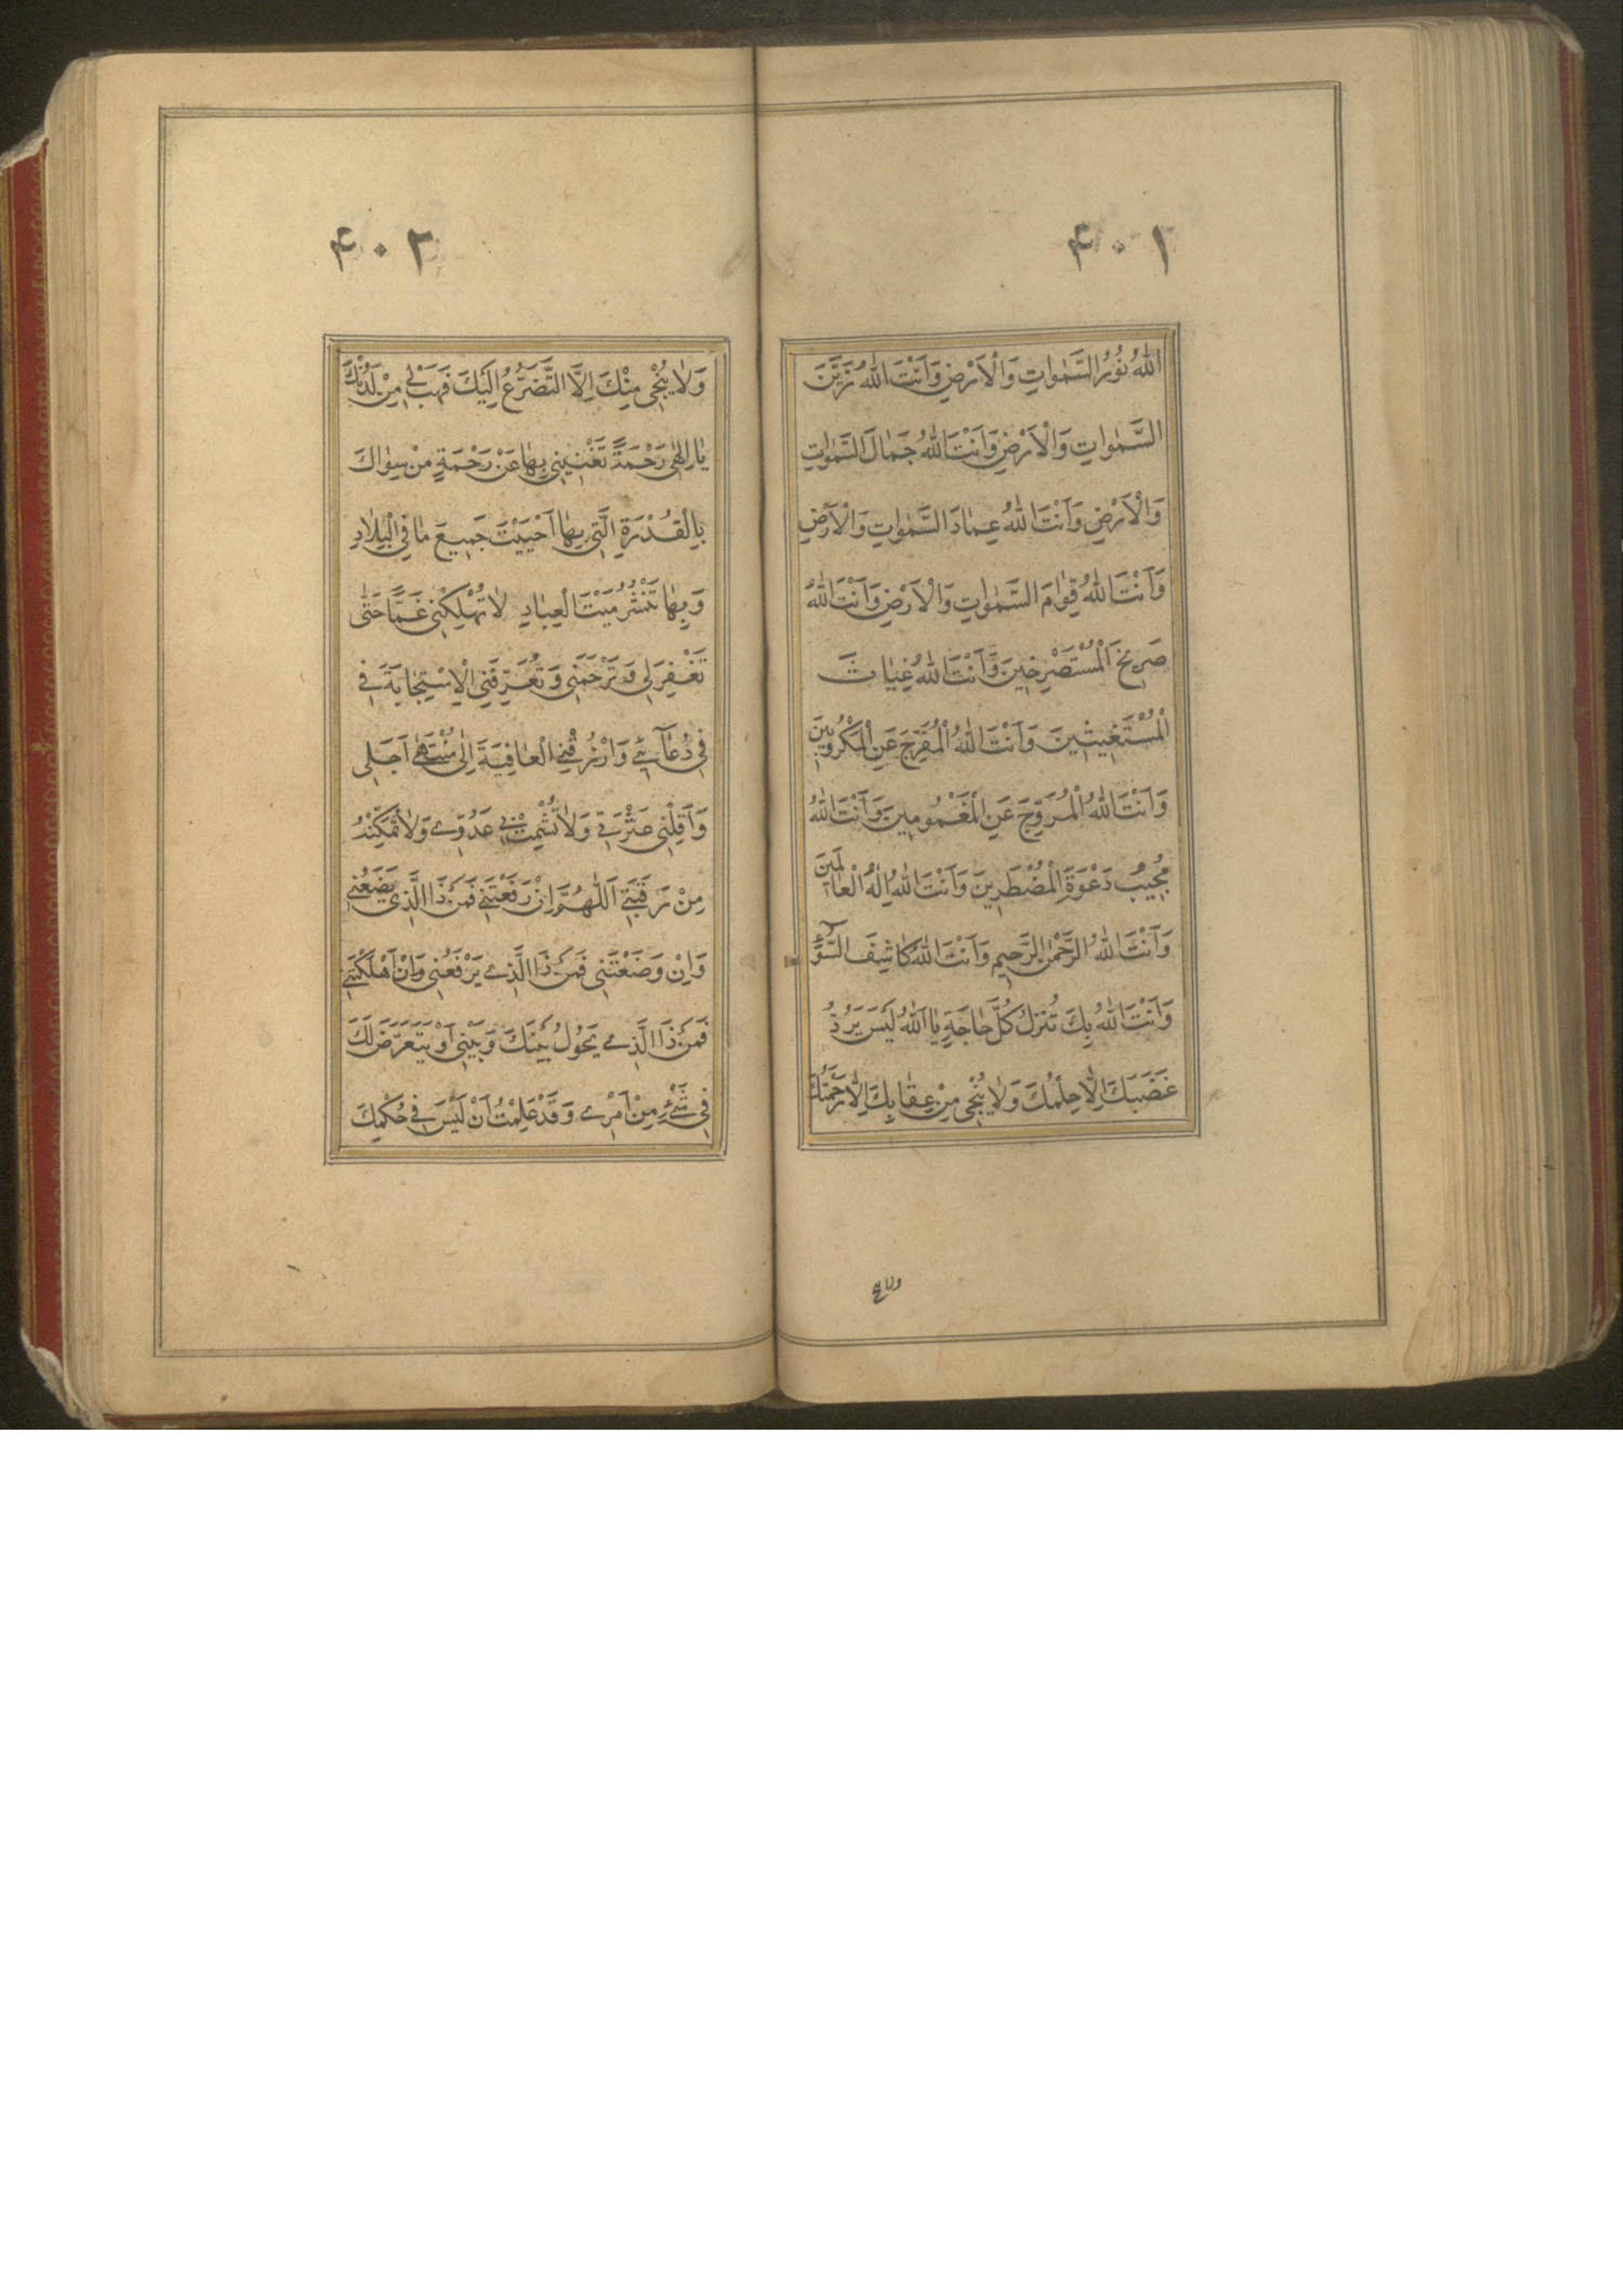 ۴۰۱
اللّٰهُ نُورُ السَّمٰوَاتِ وَالْاَرْضِ وَاَنْتَ اللّٰهُ زَيْنَ
السَّمٰوَاتِ وَالْاَرْضِ وَاَنْتَ اللّٰهُ جَمَالَ السَّمٰوَاتِ
وَالْاَرْضِ وَاَنْتَ اللّٰهُ عِمَادَ السَّمٰوَاتِ وَالْاَرْضِ
وَاَنْتَ اللّٰهُ قِوَامَ السَّمٰوَاتِ وَالْاَرْضِ وَاَنْتَ اللّٰهُ
صَرِيخَ الْمُسْتَصْرِخِينَ وَاَنْتَ اللّٰهُ غِيَاثَ
الْمُسْتَغِيثِينَ وَاَنْتَ اللّٰهُ الْمُفَرِّجَ عَنِ الْمَكْرُوبِينَ
وَاَنْتَ اللّٰهُ الْمُرَوِّجَ عَنِ الْمَغْمُومِينَ وَاَنْتَ اللّٰهُ
مُجِيبُ دَعْوَةِ الْمُضْطَرِينَ وَاَنْتَ اللّٰهُ اِلٰهُ الْعَالَمِينَ
وَاَنْتَ اللّٰهُ الرَّحْمٰنُ الرَّحِيمِ وَاَنْتَ اللّٰهُ كَاشِفَ السُّوءِ
وَاَنْتَ اللّٰهُ بِكَ تُنْزَلُ كُلَّ حَاجَةٍ يَا اَللّٰهُ لَيْسَ يَرُدُّ
غَضَبَكَ اِلَّا حِلْمُكَ وَلَا يُنْجِي مِنْ عِقَابِكَ اِلَّا رَحْمَتُكَ
۴۰۲
وَلَا يُنْجِي مِنْكَ اِلَّا التَّضَرُّعُ اِلَيْكَ فَهَبْ لِي مِنْ لَدُنْكَ
يَا اِلٰهِي رَحْمَةً تُغْنِينِي بِهَا عَنْ رَحْمَةٍ مِنْ سِوَاكَ
بِالْقُدْرَةِ الَّتِي بِهَا اَحْيَيْتَ جَمِيعَ مَا فِي الْبِلَادِ
وَبِهَا تَنْشُرُ مَيْتَ الْعِبَادِ لَا تُهْلِكْنِي غَمًّا حَتّٰى
تَغْفِرَ لِي وَتَرْحَمَنِي وَتُعَرِّفَنِي الْاِسْتِجَابَةَ فِي
فِي دُعَآئِي وَارْزُقْنِي الْعَافِيَةَ اِلٰى مُنْتَهٰى اَجَلِي
وَاَقِلْنِي عَثْرَتِي وَلَا تُشْمِتْ بِي عَدُوِّي وَلَا تُمَكِّنْهُ
مِنْ رَقَبَتِي اَللّٰهُمَّ اِنْ رَفَعْتَنِي فَمَنْ ذَا الَّذِي يَضَعُنِي
وَاِنْ وَضَعْتَنِي فَمَنْ ذَا الَّذِي يَرْفَعُنِي وَاِنْ اَهْلَكْتَنِي
فَمَنْ ذَا الَّذِي يَحُولُ بَيْنَكَ وَبَيْنِي اَوْ يَتَعَرَّضُ لَكَ
فِي شَيْءٍ مِنْ اَمْرِي وَقَدْ عَلِمْتُ اَنْ لَيْسَ فِي حُكْمِكَ